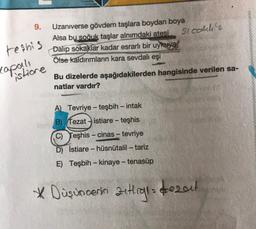 9. Uzanıverse gövdem taşlara boydan boya
Alsa bu soğuk taşlar alnımdaki ateşi
Sıcaklık
teşhis
Dalıp sokaklar kadar esrarlı bir uykuya
Ölse kaldırımların kara sevdalı eşi
kapalı
istiare
Bu dizelerde aşağıdakilerden hangisinde verilen sa-
natlar vardır?
A) Tevriye – teşbih – intak
B) Tezat – istiare – teşhis
C) Teşhis – cinas – tevriye
D) İstiare – hüsnütalil – tariz
E) Teşbih – kinaye – tenasüp
* Düşüncenin zıtlığı = tezat